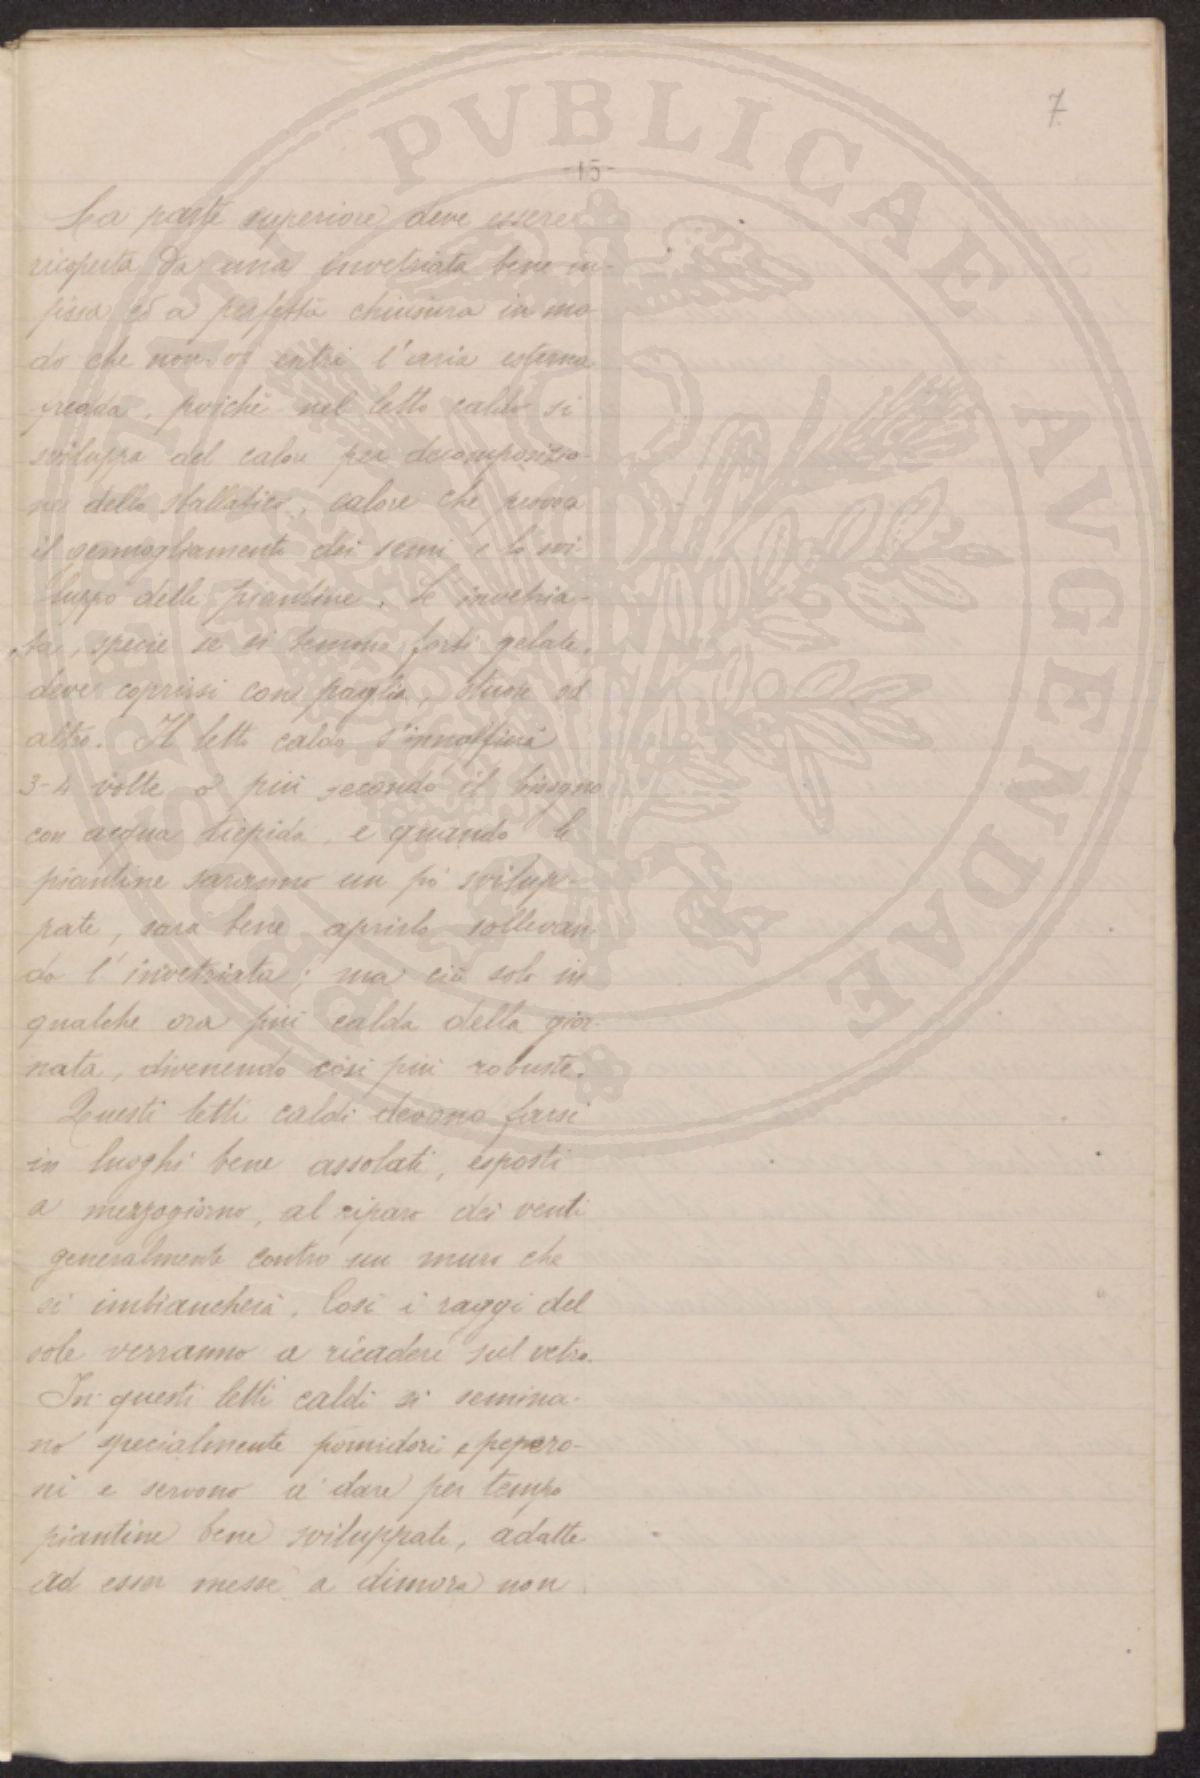 7
-15-
La parte superiore deve essere
ricoperta da una invetriata bene in-
fissa ed a perfetta chiusura in mo
do che non vi entri l'aria esterna
fredda, poichè nel letto caldo si
sviluppa del calore per decomposizio-
ne dello stallatico, calore che provoca
il germogliamento dei semi e lo svi-
luppo delle piantine. Le invetria-
te, specie se si temono forti gelate,
deve coprirsi con paglia, stuoie od
altro. Il letto caldo s'innaffierà
3-4 volte o più secondo il bisogno
con acqua tiepida, e quando le
piantine saranno un pò svilup-
pate, sara bene aprirlo sollevan-
do l'invetriata; ma ciò solo in
qualche ora più calda della gior-
nata, divenendo così più robuste.
Questi letti caldi devono farsi
in luoghi bene assolati, esposti
a mezzogiorno, al riparo dei venti
generalmente contro un muro che
si imbiancherà. Così i raggi del
sole verranno a ricadere sul vetro.
In questi letti caldi si semina-
no specialmente pomidori e pepero-
ni e servono a dare per tempo
piantine bene sviluppate, adatte
ad esser messe a dimora non
PVBLICAE AVGENDAE